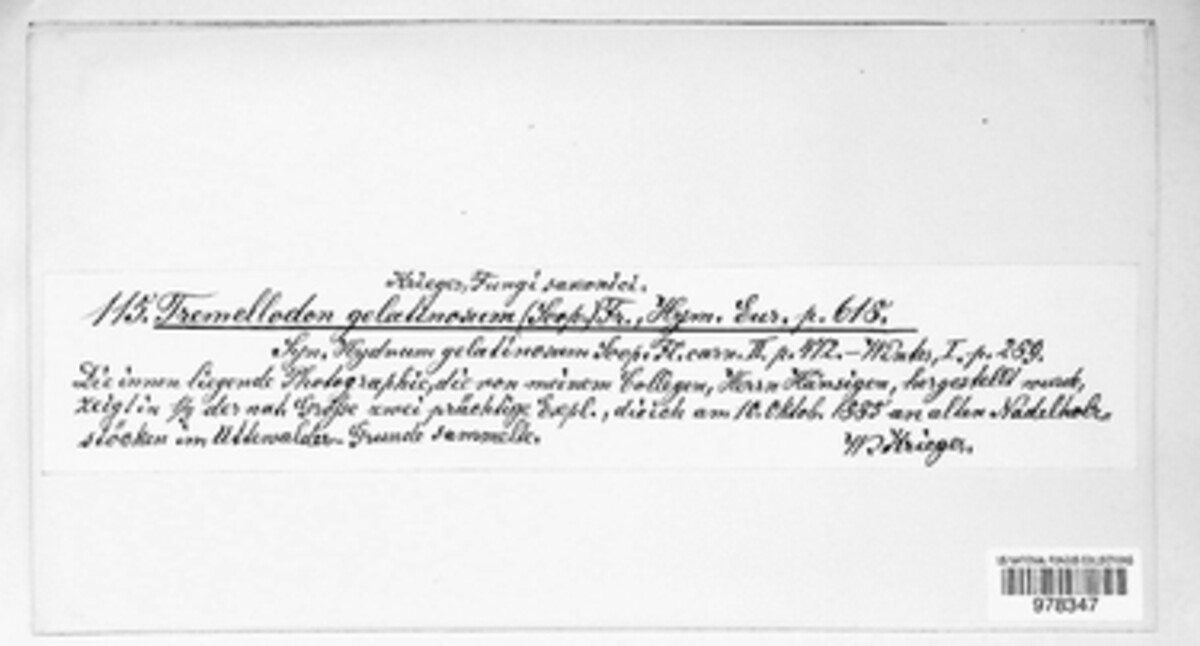 Krieger, Fungi saxonici.
115. Tremellodon gelatinosum (Scop.) Fr., Hym. Eur. p. 618.
Syn. Hydnum gelatinosum Scop. Fl. carn. II. p. 472. – Winter, I. p. 289.
Die innen liegende Photographie, die von meinem Collegen, Herrn Hänsigen, hergestellt wurde,
zeigt in der nat. Größe zwei prächtige Expl., die ich am 10. Oktob. 1885 an alten Nadelholz-
stöcken im Uttewalder Grunde sammelte.
W Krieger.
US NATIONAL FUNGUS COLLECTIONS
978347